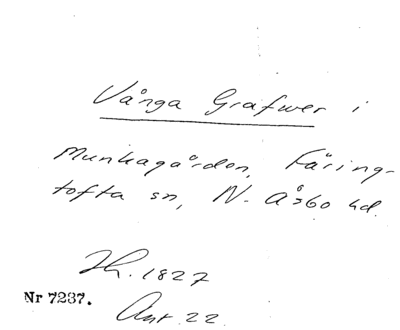 Vånga Grafwer i
Munkagården, Färing-
tofta sn, N. Åsbo hd.
Th. 1827
Nr 7237.
Ant 22